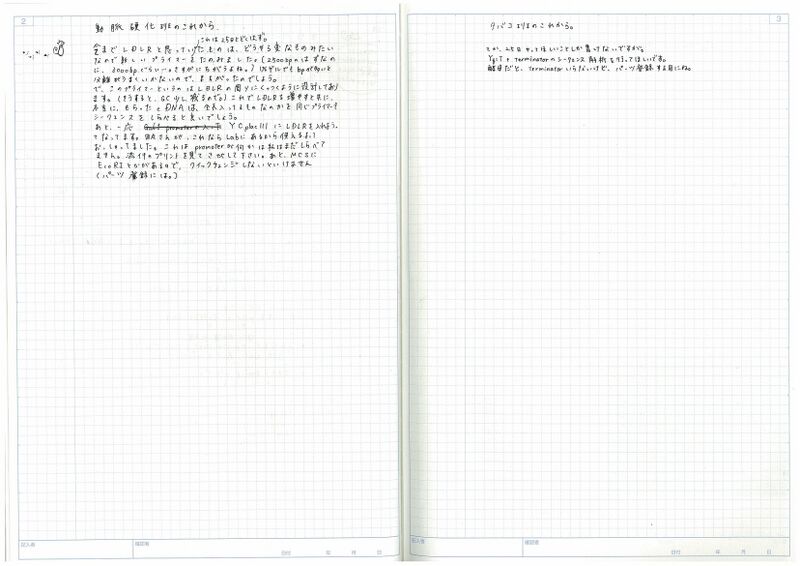 2
動脈硬化班のこれから
これは25日とどくはず。
今までLDLRと思っていたものは、どうやら変なものみたい
なので新しいプライマーをたのみました。(2500bpのはずなの
に、3000bpぐらい…さすがにちがうよね。)
分離がうまくいかないので、まちがったのでしょう。
で、このプライマーというのはLDLRの周りにくっつくように設計してあり
ます。(そうすると、GC少し減るので。)これでLDLRを増やすと共に、
本当に、もらったcDNAは、全長入ってるものなのかを同じプライマーで
シークエンスをしらべると良いでしょう。
あと、一応 YCplac111にLDLRを入れよう。
ってなってます。 さんが、これならLabにあるから使えるよって
おっしゃってました。これはpromoterが何かは私はまだしらべて
ません。添付のプリントを見てさがして下さい。あと、MCSに
EcoRIとかがあるので、クイックチェンジしないといけません
(パーツ登録には。)
記入者
確認者
日付 年 月 日
3
タバコ班のこれから。
とか、 ほしいことしか書けないですが。
+ terminatorのシークエンス解析を行ってほしいです。
酵母だと、terminatorいらないけど、パーツ登録する用にね。
記入者
確認者
日付 年 月 日